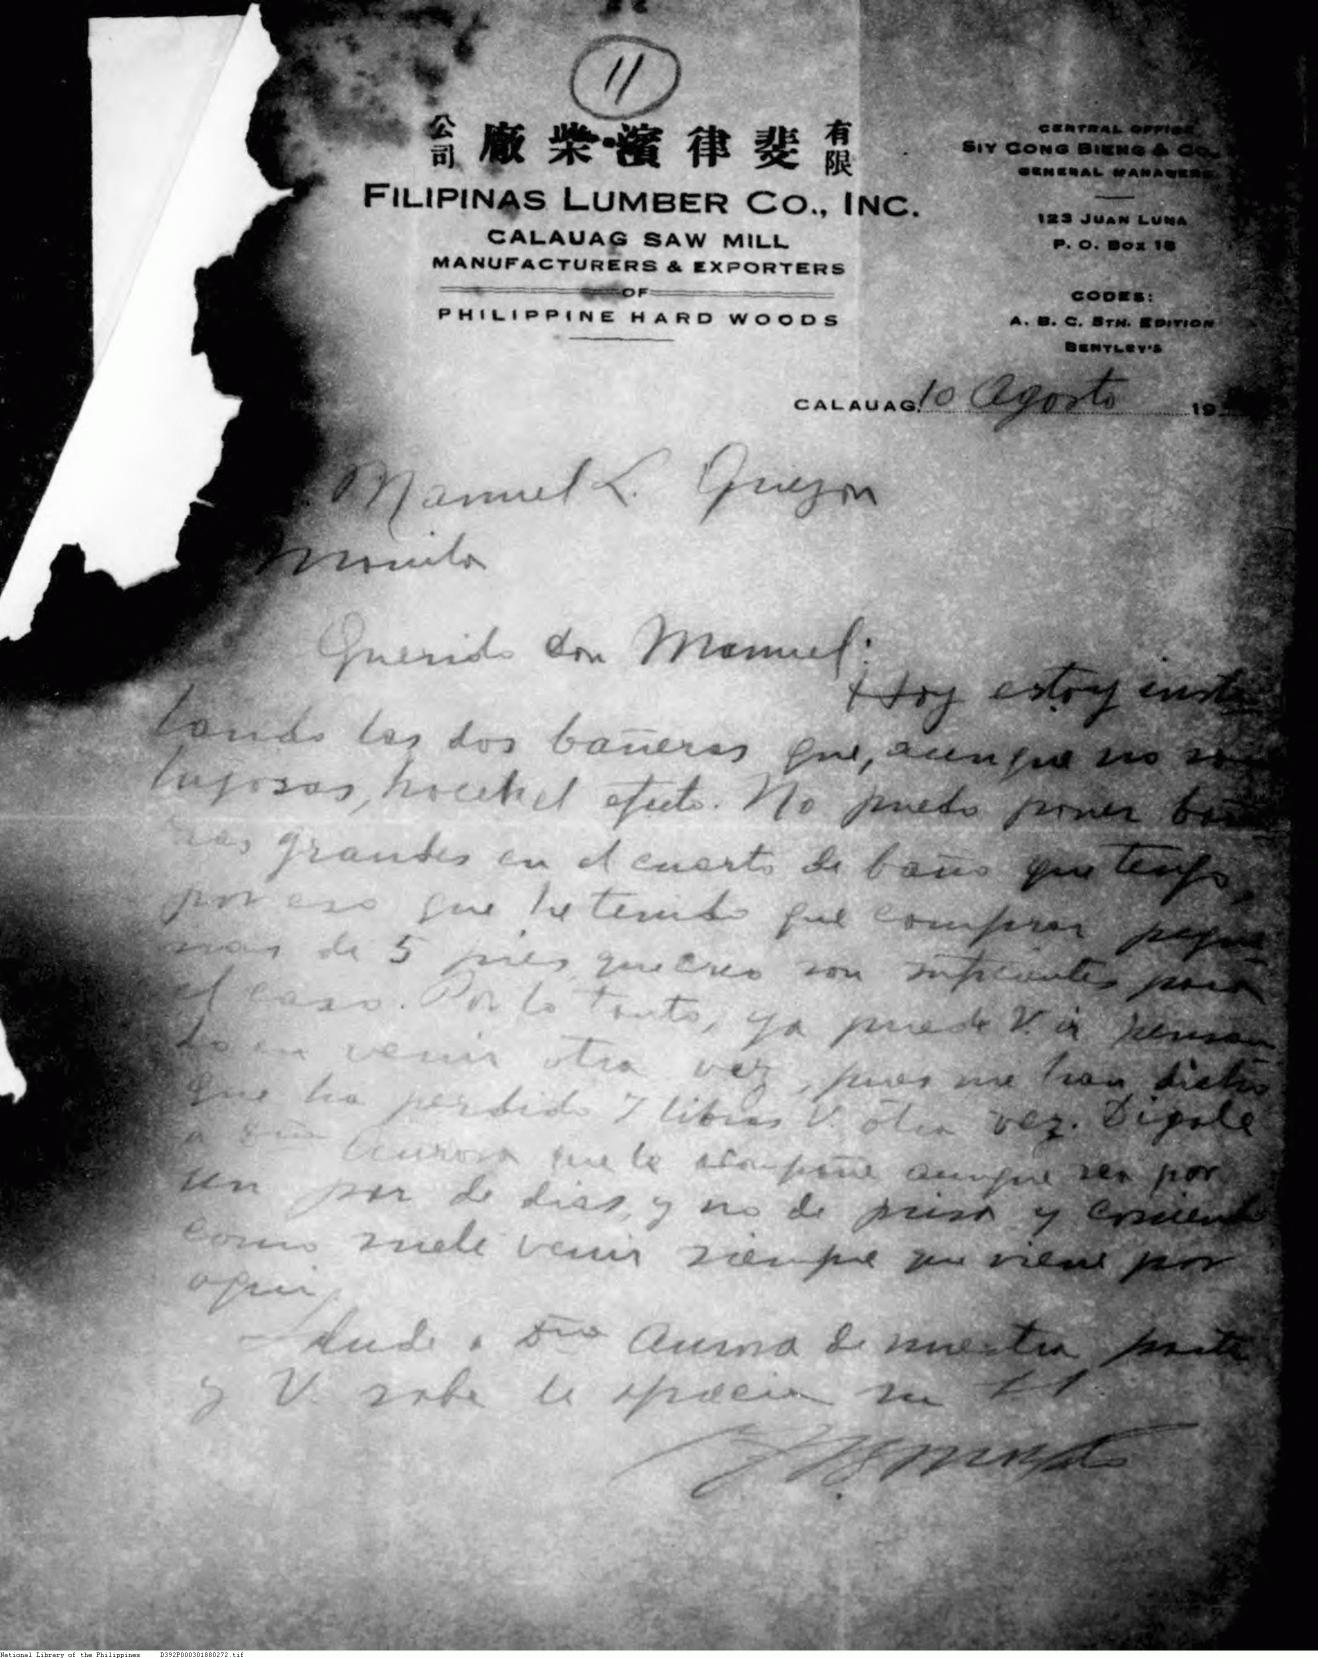 11
公司 廠柴濱律斐 有限
FILIPINAS LUMBER CO., INC.
CALAUAG SAW MILL
MANUFACTURERS & EXPORTERS
OF
PHILIPPINE HARD WOODS
CENTRAL OFFICE
SIY CONG BIENG & CO.,
GENERAL MANAGERS
123 JUAN LUNA
P. O. BOX 18
CODES:
A. B. C. 5TH. EDITION
BENTLEY'S
CALAUAG, 10 Agosto 19
Manuel L. Quezon
Manila
Querido don Manuel:
Hoy estoy insta
lando las dos bañeras que, aunque no son
lujosas, hacen el efecto. No puedo poner bañe
ras grandes en el cuarto de baño que tengo,
por eso que he tenido que comprar peque
ñas de 5 pies, que creo son suficientes para
el caso. Por lo tanto, ya puede V. ir pensan
do en venir otra vez, pues me han dicho
que ha perdido 7 libras V. otra vez. Digale
a Dña Aurora que le acompañe aunque sea por
un par de dias, y no de prisa y corriendo
como suele venir siempre que viene por
aqui.
Salude a Dña Aurora de nuestra parte
y V. sabe le aprecia su